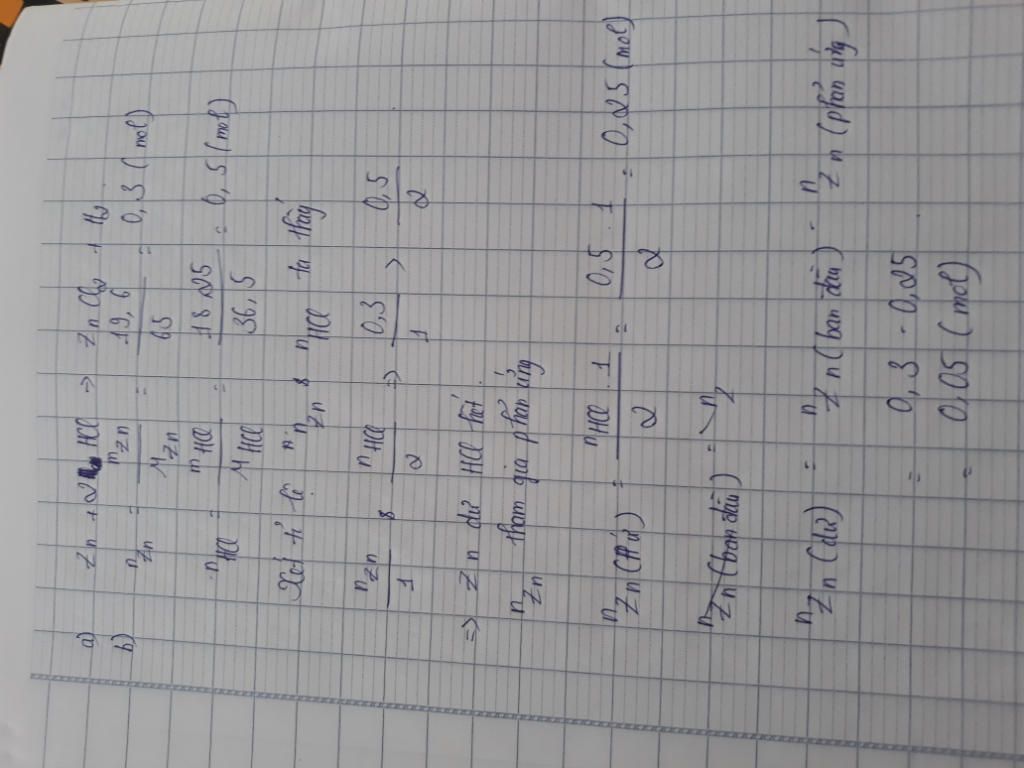 a) Zn + 2 HCl => ZnCl2 + H2
b) nZn = mZn / MZn = 19,6 / 65 = 0,3 (mol)
nHCl = mHCl / MHCl = 18,25 / 36,5 = 0,5 (mol)
Xét tỉ lệ nZn & nHCl ta thấy
nZn / 1 & nHCl / 2 => 0,3 / 1 > 0,5 / 2
=> Zn dư HCl hết
nZn tham gia phản ứng
nZn (Pứ) = nHCl . 1 / 2 = 0,5 . 1 / 2 = 0,25 (mol)
nZn (ban đầu) = n
nZn (dư) = nZn (ban đầu) - nZn (phản ứng)
= 0,3 - 0,25
= 0,05 (mol)